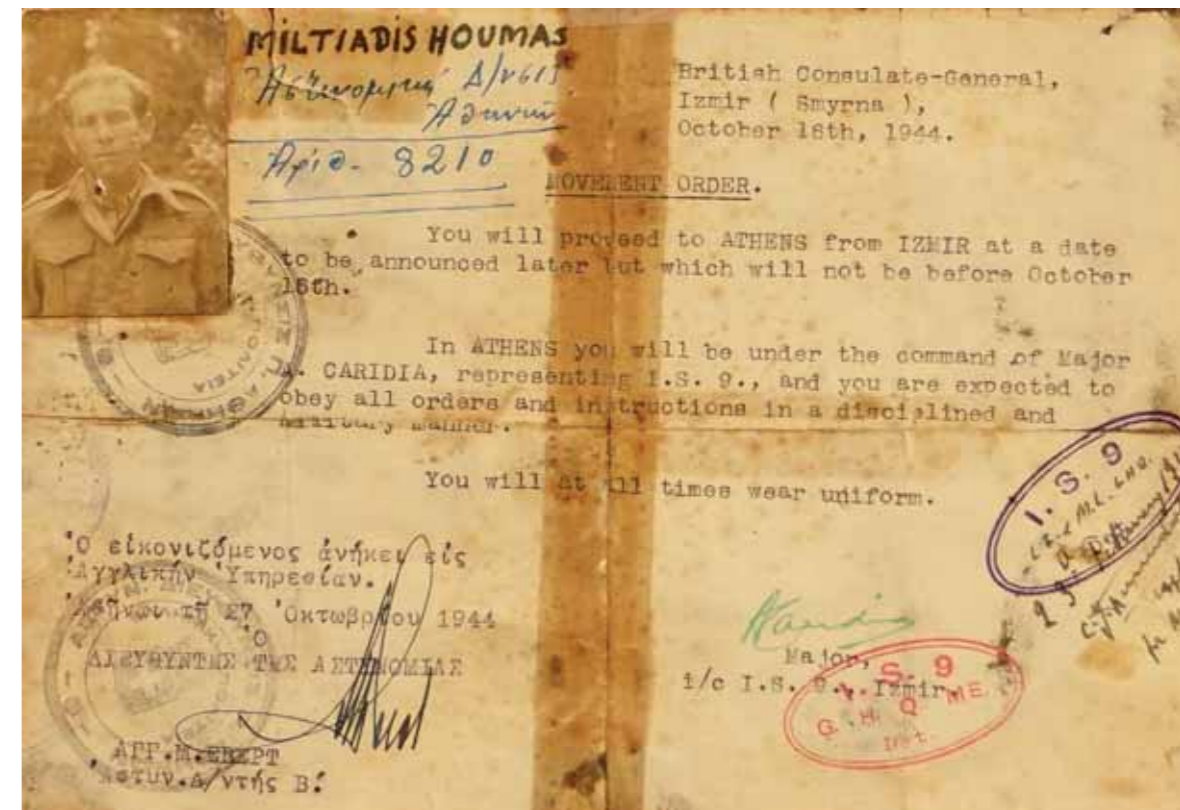 MILTIADIS HOUMAS
Ἀστυνομική Δ/νσις
Ἀθηνῶν
Ἀριθ. 8210
British Consulate-General,
Izmir ( Smyrna ),
October 16th, 1944.
MOVEMENT ORDER.
You will proceed to ATHENS from IZMIR at a date
to be announced later but which will not be before October
16th.
In ATHENS you will be under the command of Major
A. CARIDIA, representing I.S. 9., and you are expected to
obey all orders and instructions in a disciplined and
military manner.
You will at all times wear uniform.
Ὁ εἰκονιζόμενος ἀνήκει εἰς
Ἀγγλικήν Ὑπηρεσίαν.
Ἀθῆναι τῇ 27 Ὀκτωβρίου 1944
Ὁ
ΔΙΕΥΘΥΝΤΗΣ ΤΗΣ ΑΣΤΥΝΟΜΙΑΣ
ΑΓΓ.Μ.ΕΒΕΡΤ
Ἀστυν.Δ/ντής Β.
Major,
i/c I.S. 9., Izmir.
I. S. 9
G. H. Q. ME.
I. S. 9